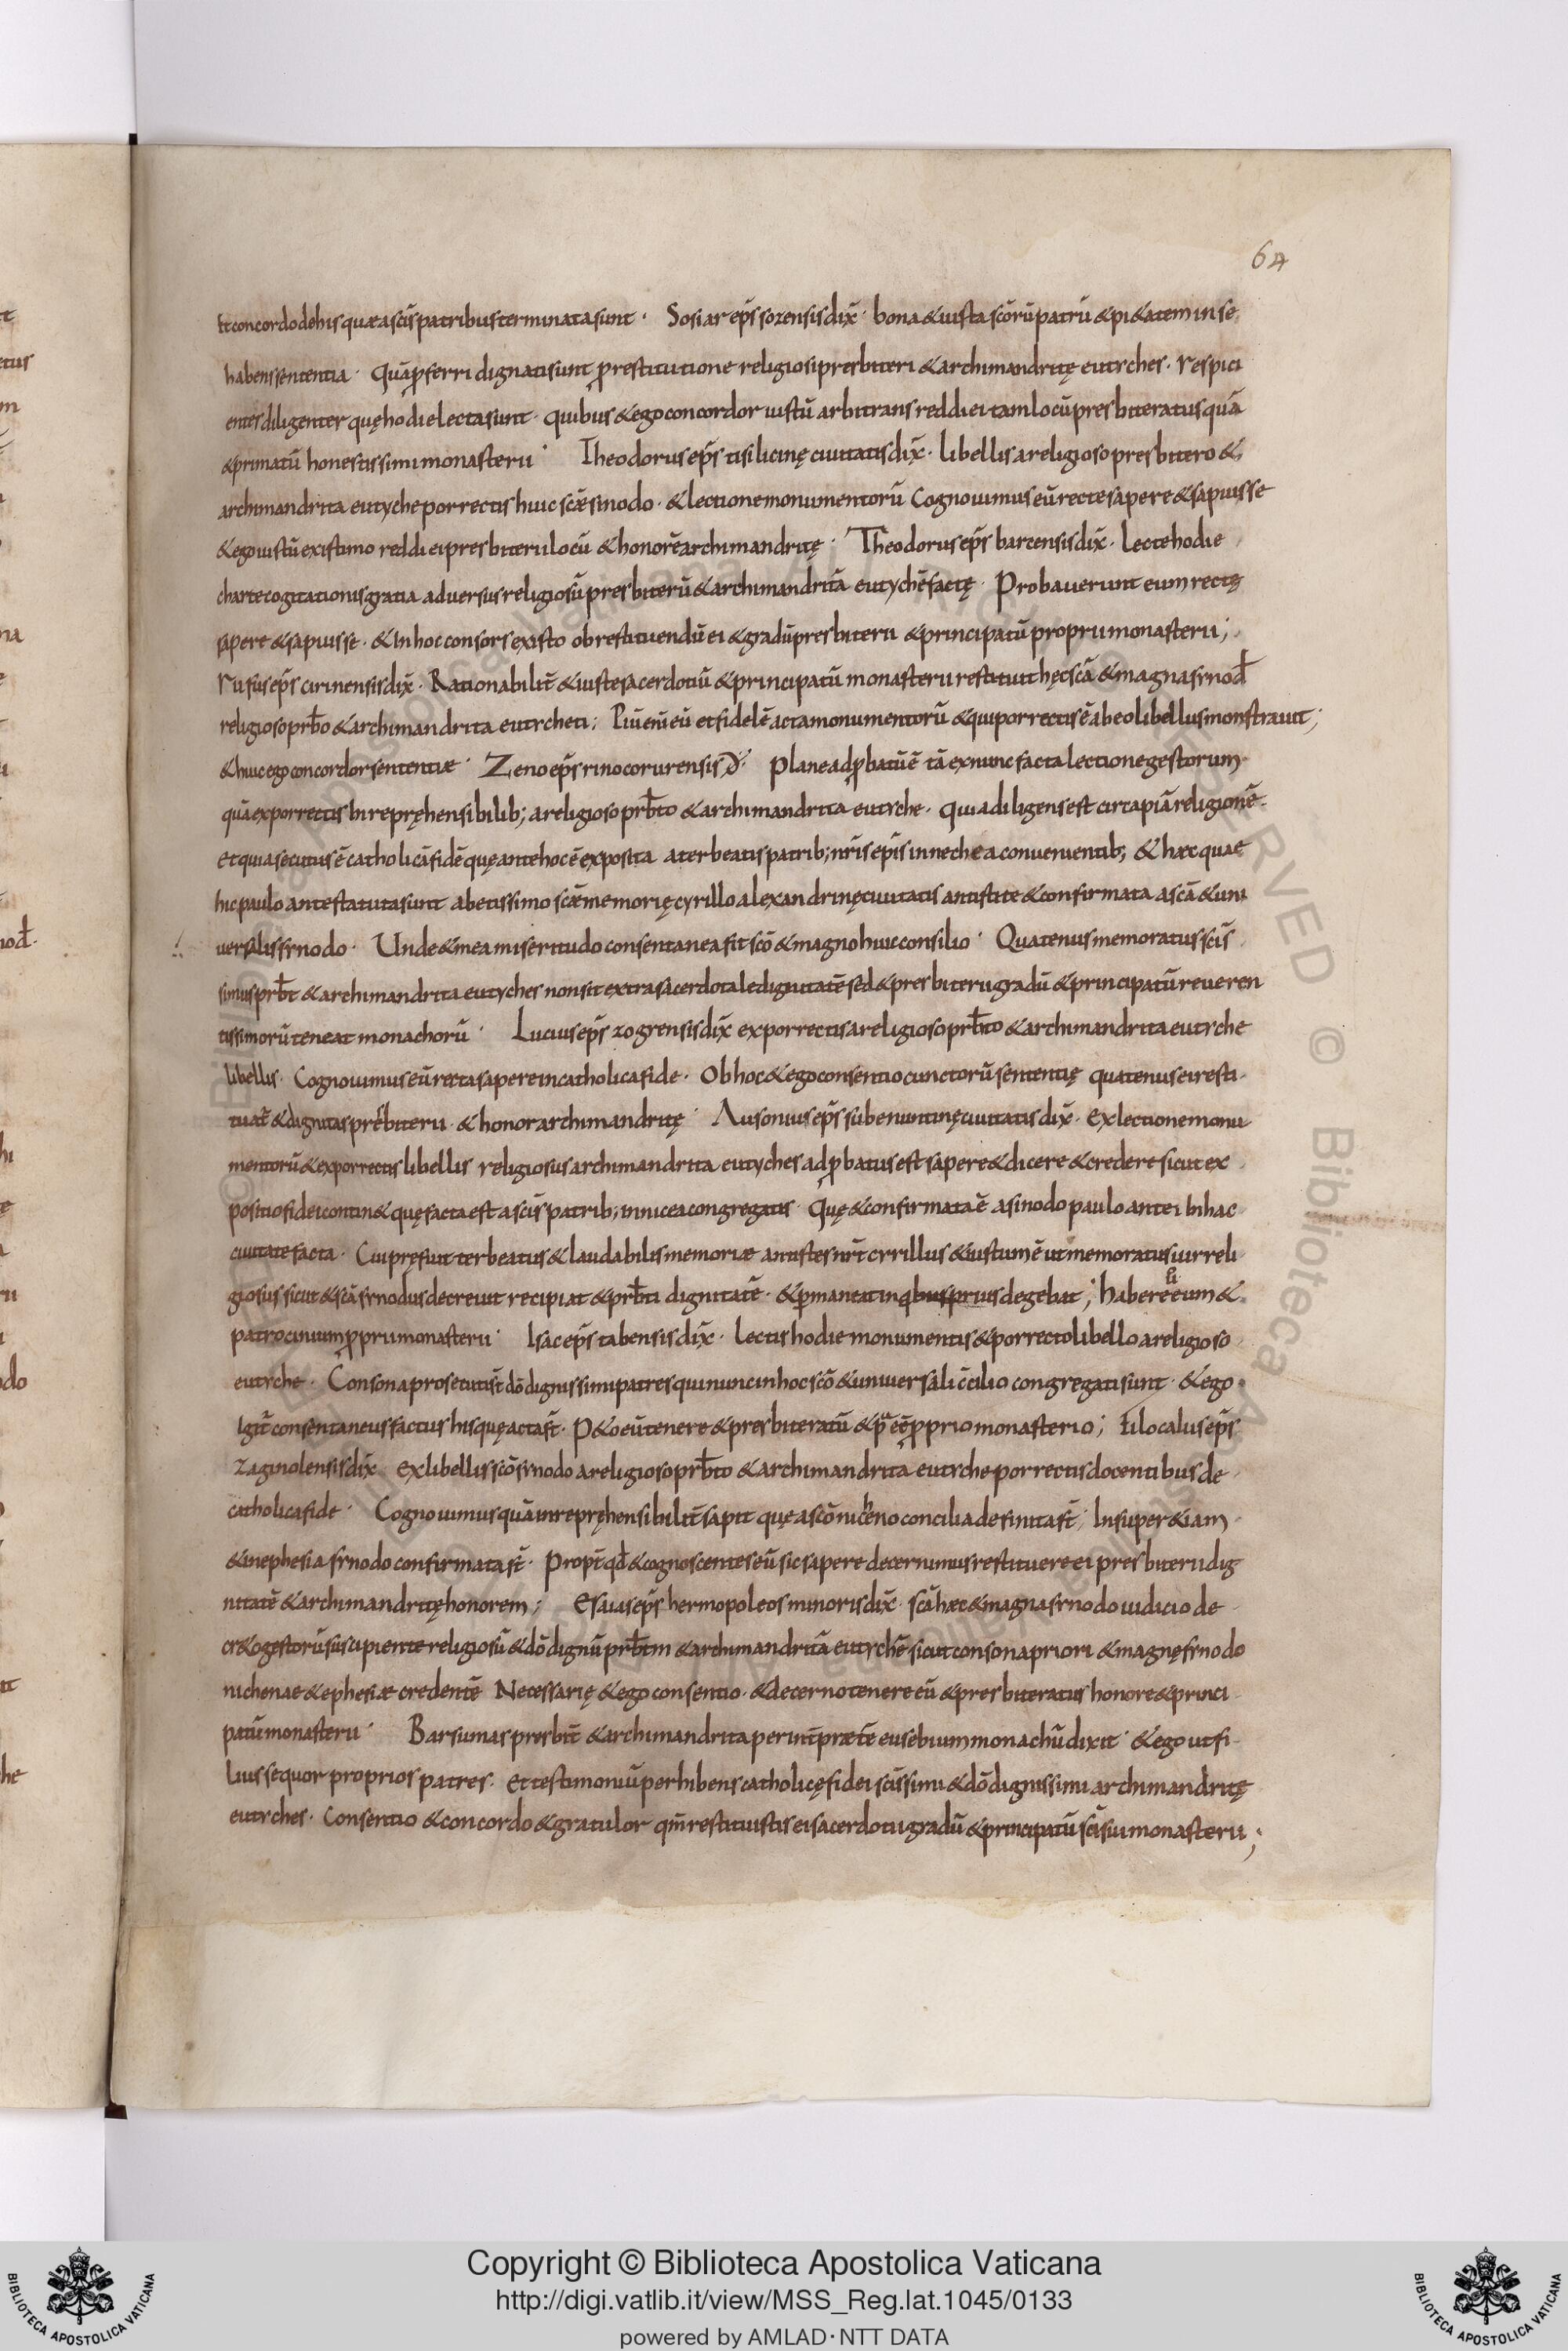 64
et concordo de his quae a scīs patribus terminata sunt · Sosiar ep̄s sozensis dix̄ · bona & iusta scōrū patrū & pi&atem in se
habens sententia · quā p̄ferri dignati sunt p restitutione religiosi presbiteri & archimandritę eutyches · respici
entes diligenter quę hodie lecta sunt · quibus & ego concordor iustū arbitrans reddi ei tam locū presbiteratus quā
& primatū honestissimi monasterii · Theodorus ep̄s tisilicinę ciuitatis dix̄ · libellis a religioso presbitero &
archimandrita eutyche porrectis huic scǣ sinodo · & lectione monumentorū cognouimus eū recte sapere & sapuisse
& ego iustū existimo reddi ei presbiterii locū & honorē archimandritę · Theodorus ep̄s barcensis dix̄ · Lecte hodie
charte cogitationis gratia aduersus religiosū presbiterū & archimandritā eutychē factę · Probauerunt eum rectę
sapere & sapuisse · & in hoc consors existo ob restituendū ei & gradū presbiterii & principatū proprii monasterii ;
Rufus ep̄s cirinensis dix̄ · Rationabilit̄ & iuste sacerdotiū & principatū monasterii restituit hęc scā & magna synod̄
religioso prb̄o & archimandrita eutycheti ; Piū eni eū et fidelē acta monumentorū & qui porrectis ē ab eo libellus monstrauit ;
& huic ego concordor sententiæ · Zeno ep̄s rinocorurensis d̄ · plane adpbatū ē tā ex nunc facta lectione gestorum
quā ex porrectis inrepręhensibilib; a religioso prb̄to & archimandrita eutyche · quia diligens est circa piā religionē ·
et quia secutus ē catholicā fidē quę ante hoc ē exposita a ter beatis patrib; nr̄is ep̄is in nechea conuenientib; & hæc quae
hic paulo ante statuta sunt a betissimo scǣ memorię cyrillo alexandrinę ciuitatis antistite & confirmata a scā & uni
uersalis synodo · Unde & mea miseritudo consentanea fit scō & magno huic consilio · Quatenus memoratus scīs
simus prb̄t & archimandrita eutyches non sit extra sacerdotale dignitatē sed & presbiterii gradū & principatū reueren
tissimorū teneat monachorū · Lucius ep̄s zogrensis dix̄ ex porrectis a religioso prb̄to & archimandrita eutyche
libellis · Cognouimus eū recta sapere in catholica fide · Ob hoc & ego consentio cunctorū sententię quatenus ei resti
tuat̄ & dignitas prēbiterii · & honor archimandritę · Ausonius ep̄s subenuntinę ciuitatis dix̄ · Ex lectione monu
mentorū & ex porrectis libellis religiosus archimandrita eutyches adpbatus est sapere & dicere & credere sicut ex
positio fidei contin& quę facta est a scīs patrib; in nicea congregatis · Quę & confirmata ē a sinodo paulo ante i bi hac
ciuitate facta · Cui pręfuit ter beatus & laudabilis memoriæ antistes nr̄t cyrillus & iustum ē ut memoratus uir reli
giosus sicut & scā synodus decreuit recipiat & prb̄ti dignitatē · & pmaneat in qbus prius degebat ; habere eum &
patrocinium pprii monasterii · Isac ep̄s tabensis dix̄ · Lectis hodie monumentis & porrecto libello a religioso
eutyche · Consona prosecuti st̄ dō dignissimi patres qui nunc in hoc scō & uniuersali cc̄ilio congregati sunt · & ego
Igit̄ consentaneus factus his quę acta st̄ · p&o eū tenere & presbiteratū & p̄ eē pprio monasterio ; filocalus ep̄s
zaginolensis dix̄ ex libellis scō synodo a religioso prb̄to & archimandrita eutyche porrectis docentibus de
catholica fide · Cognouimus quā inrepręhensibilit̄ sapit quę a scō nikeno concilia definita st̄ ; Insuper & iam
& in ephesia synodo confirmata st̄ · Propt̄ qd̄ & cognoscentes eū sic sapere decernimus restituere ei presbiterii dig
nitatē & archimandritę honorem ; Esaias ep̄s hermopoleos minoris dix̄ · scā hæc & magna synodo iudicio de
cr&o gestorū suscipiente religiosū & dō dignū prb̄tm & archimandritā eutychē sicut consona priori & magnę synodo
nichenae & ephesiæ credentē Necessarię & ego consentio · & decerno tenere eū & presbiteratus honore & princi
patū monasterii · Barsumas presbit̄ & archimandrita per int̄prætē eusebium monachū dixit · & ego ut fi
lius sequor proprios patres · Et testimoniū perhibens catholicę fidei scīssimi & dō dignissimi archimandritę
eutyches · Consentio & concordo & gratulor qm̄ restituistis ei sacerdotii gradū & principatū scī sui monasterii ;
Copyright © Biblioteca Apostolica Vaticana
http://digi.vatlib.it/view/MSS_Reg.lat.1045/0133
powered by AMLAD·NTT DATA